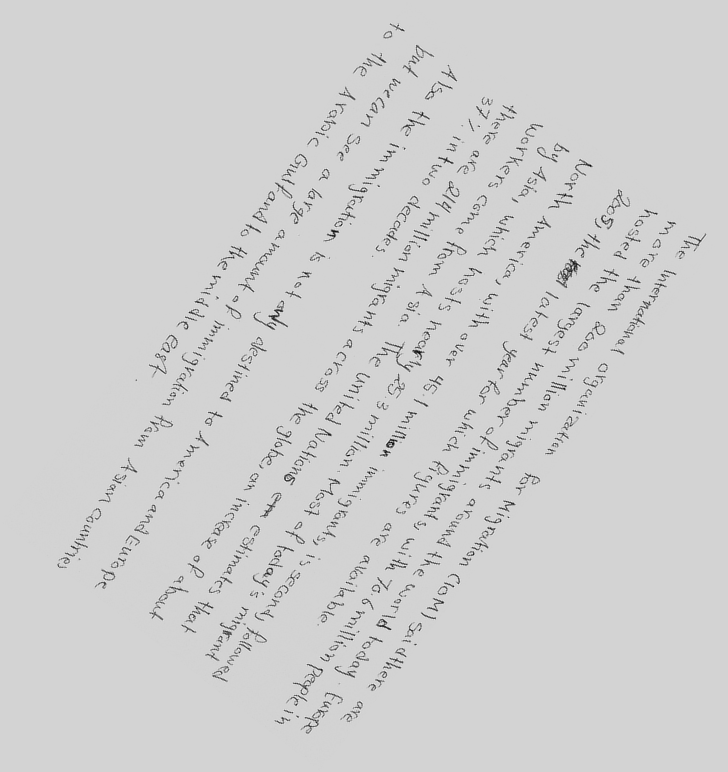 The International organization for Migration (IOM) said there are
more than 200 million migrants around the world today. Europe
hosted the largest number of immigrants, with 70.6 million people in
2005, the latest year for which figures are available.
North America, with over 45.1 million immigrants, is second, followed
by Asia, which hosts nearly 25.3 million. Most of today's migrant
workers come from Asia. The United Nations estimates that
there are 214 million migrants across the globe, an increase of about
37% in two decades.
Also the immigration is not only destined to America and Europe
but we can see a large amount of immigration from Asian countries
to the Arabic Gulf and to the middle East.